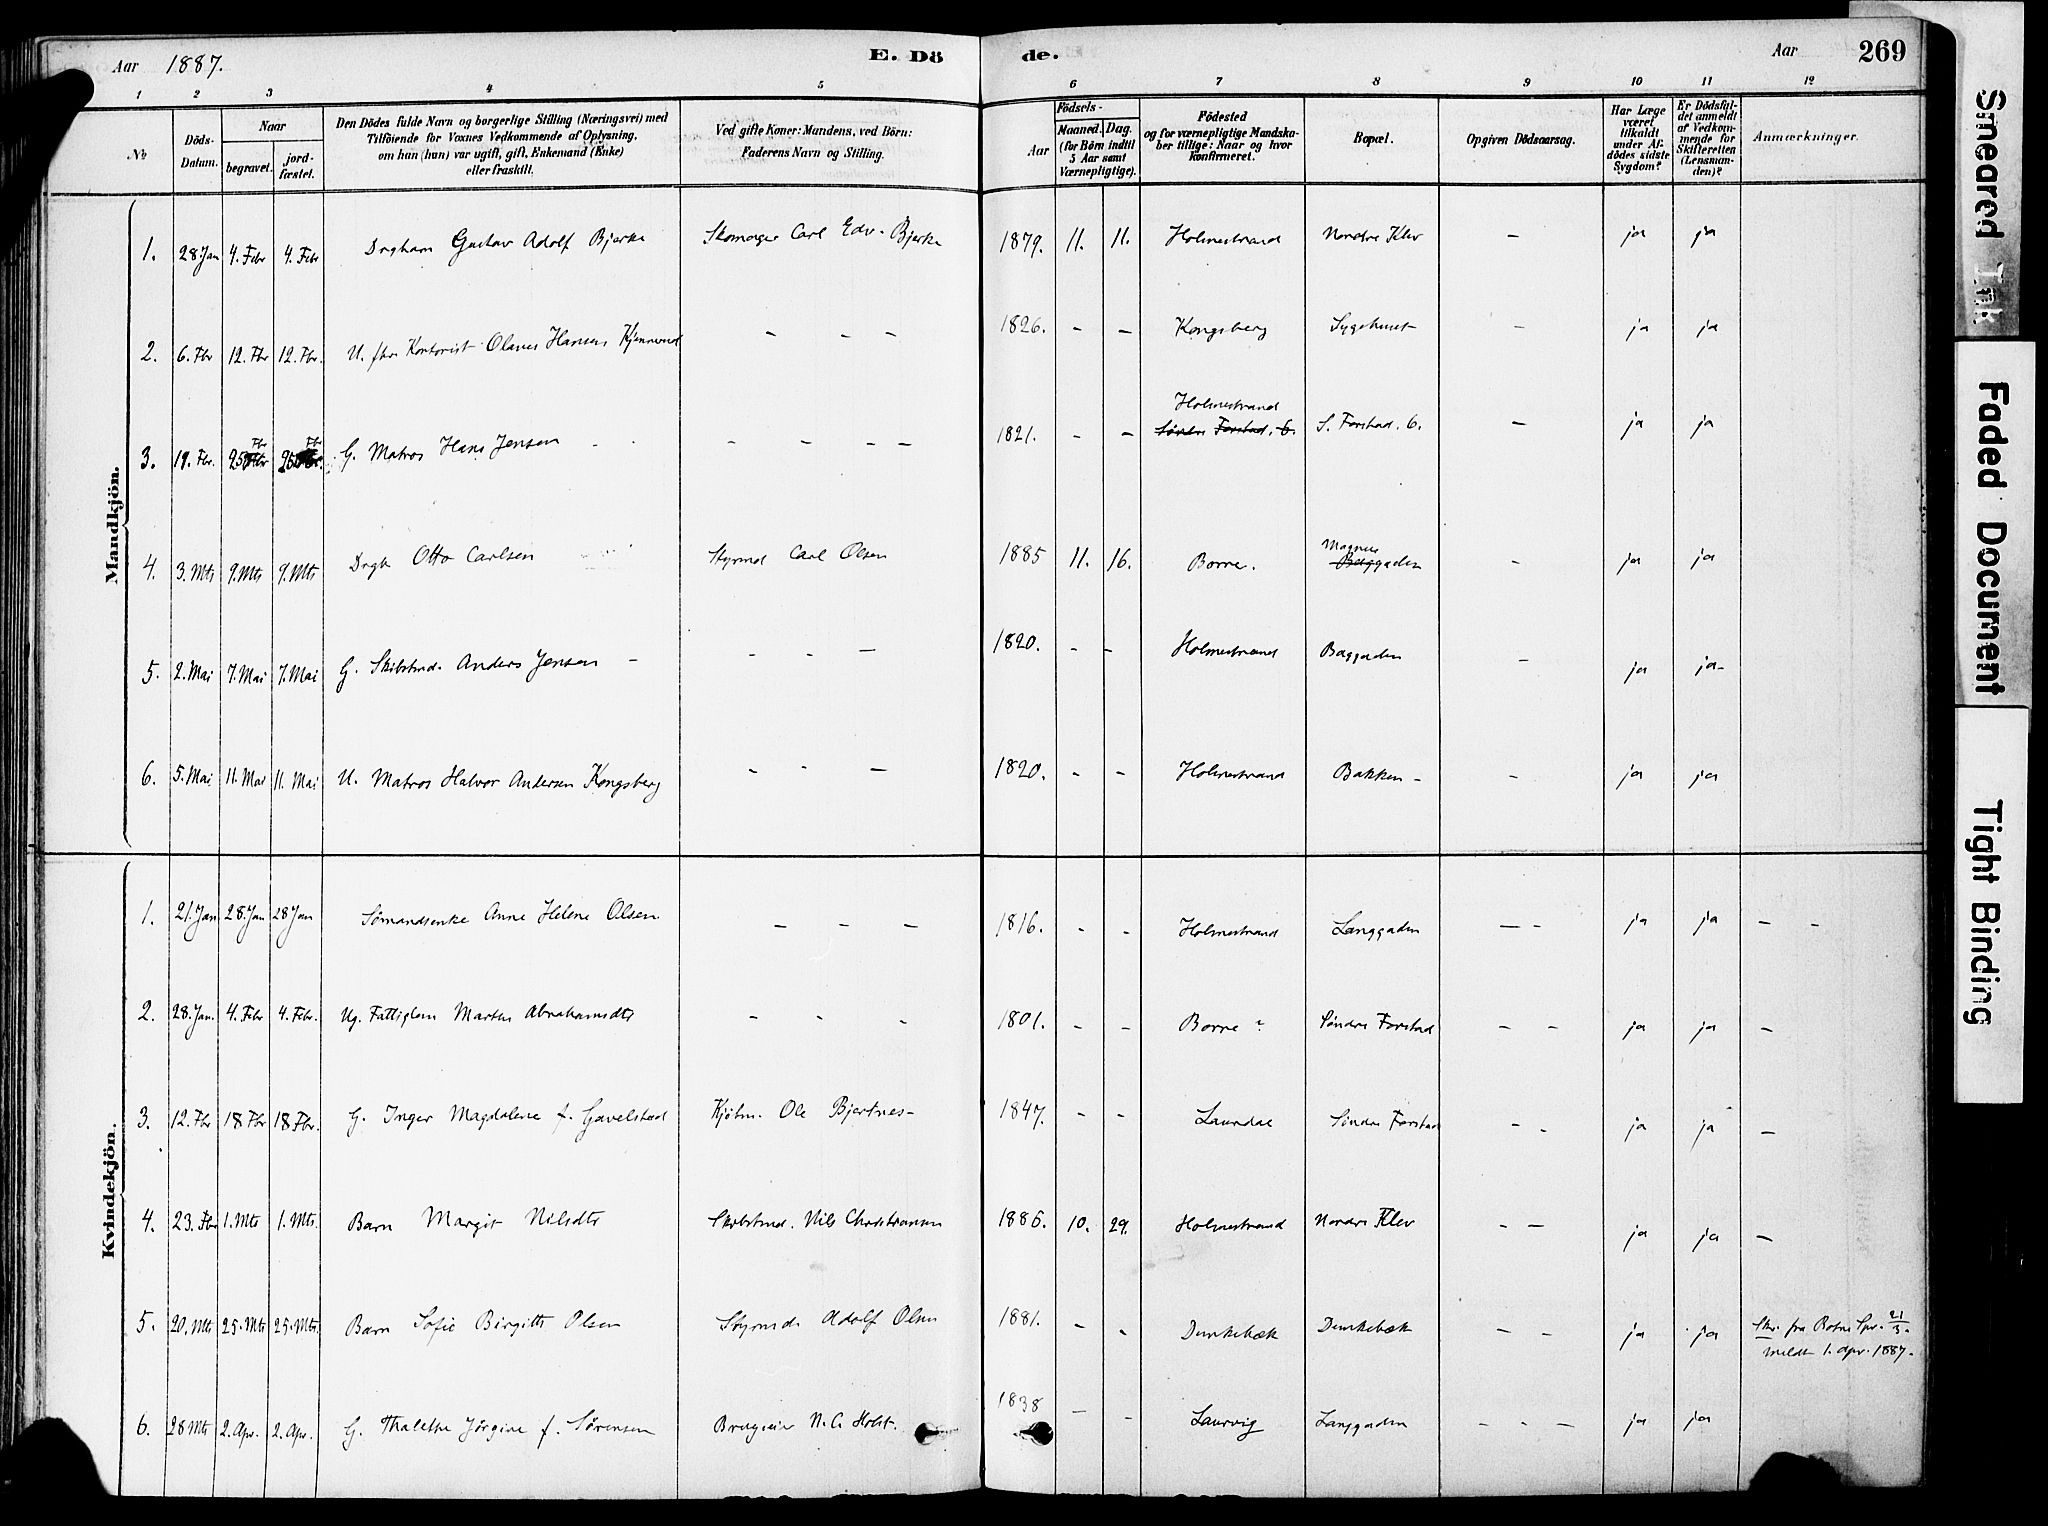 Aar 1887. E. Dö de. Aar 269
1 2 3 4 5 6 7 8 9 10 11 12
№ Döds-Datum. Naar begravet. jordfæstet. Den Dödes fulde Navn og borgerlige Stilling (Næringsvei) med Tilföiende for Voxnes Vedkommende af Oplysning, om han (hun) var ugift, gift, Enkemand (Enke) eller fraskilt. Ved gifte Koner: Mandens, ved Börn: Faderens Navn og Stilling. Födsels- Aar Maaned. Dag. (for Börn indtil 5 Aar samt Værnepligtige). Födested og for værnepligtige Mandskaber tillige: Naar og hvor konfirmeret. Bopæl. Opgiven Dödsaarsag. Har Læge været tilkaldt under Afdödes sidste Sygdom? Er Dödsfaldet anmeldt af Vedkommende for Skifteretten (Lensmanden)? Anmærkninger.
Mandkjön.
1. 28 Jan 4. Febr 4. Febr Drgbarn Gustav Adolf Bjerke Skomager Carl Edv. Bjerke 1879. 11. 11. Holmestrand Nordre Klev — ja ja
2. 6. Fbr 12. Fbr 12. Fbr. U. fhv Kontorist Olaves Hansen — — — 1826. — — Kongsberg Sygehuset — ja ja
3. 19. Fbr. 25 Fbr 25 Fbr G. Matros Hans Jensen — — — — 1821. — — Holmestrand Søndre Forstad. 6. S. Forstad. 6. — ja ja
4. 3. Mts 9. Mts 9. Mts Drgb Otto Carlsen Styrmd Carl Olsen 1885 11. 16. Borre. Magnus Baggaden — ja ja
5. 2. Mai 7. Mai 7. Mai G. Skibstmd. Anders Jensen — - - — 1820. - - Holmestrand Baggaden — ja ja-
6. 5. Mai 11. Mai 11. Mai U. Matros Halvor Andersen Kongsberg - - — 1820. - - Holmestrand Bakken - — ja ja
Kvindekjön.
1. 21. Jan 28. Jan 28 Jan Sømandsenke Anne Helene Olsen — — — 1816. - - Holmestrand Langgaden — - ja ja — -
2. 28. Jan. 4. Febr 4. Febr. Ug. Fattiglem Marten Abrahamsdtr - - - 1801. - - Borre ? Søndre Forstad — — ja ja —
3. 12. Fbr 18 Fbr 18 Fbr. G. Inger Magdalene f. Gavelstad Kjøbm. Ole Bjertnes- 1847. - - Laurdal Søndre Forstad - - ja ja —
4. 23. Fbr 1. Mts 1. Mts. Barn Margit Nilsdtr Skibstmd. Nils Christiansen 1886. 10. 29. Holmestrand Nordre Klev - — ja ja —
5. 20. Mts 25. Mts 25. Mts. Barn Sofie Birgitte Olsen Styrmd. Adolf Olsen 1881. - - Dunkebæk Dunkebæk — - ja ja Skr. fra Botne Spr. 21/3.
meldt 1. Apr. 1887.
6. 28 Mts 2. Apr. 2. Apr. G. Thalette Jørgine f. Sørensen N. C. Holst. 1838 — - Laurvig Langgaden - - — ja ja
Smeared Ink
Faded Document
Tight Binding